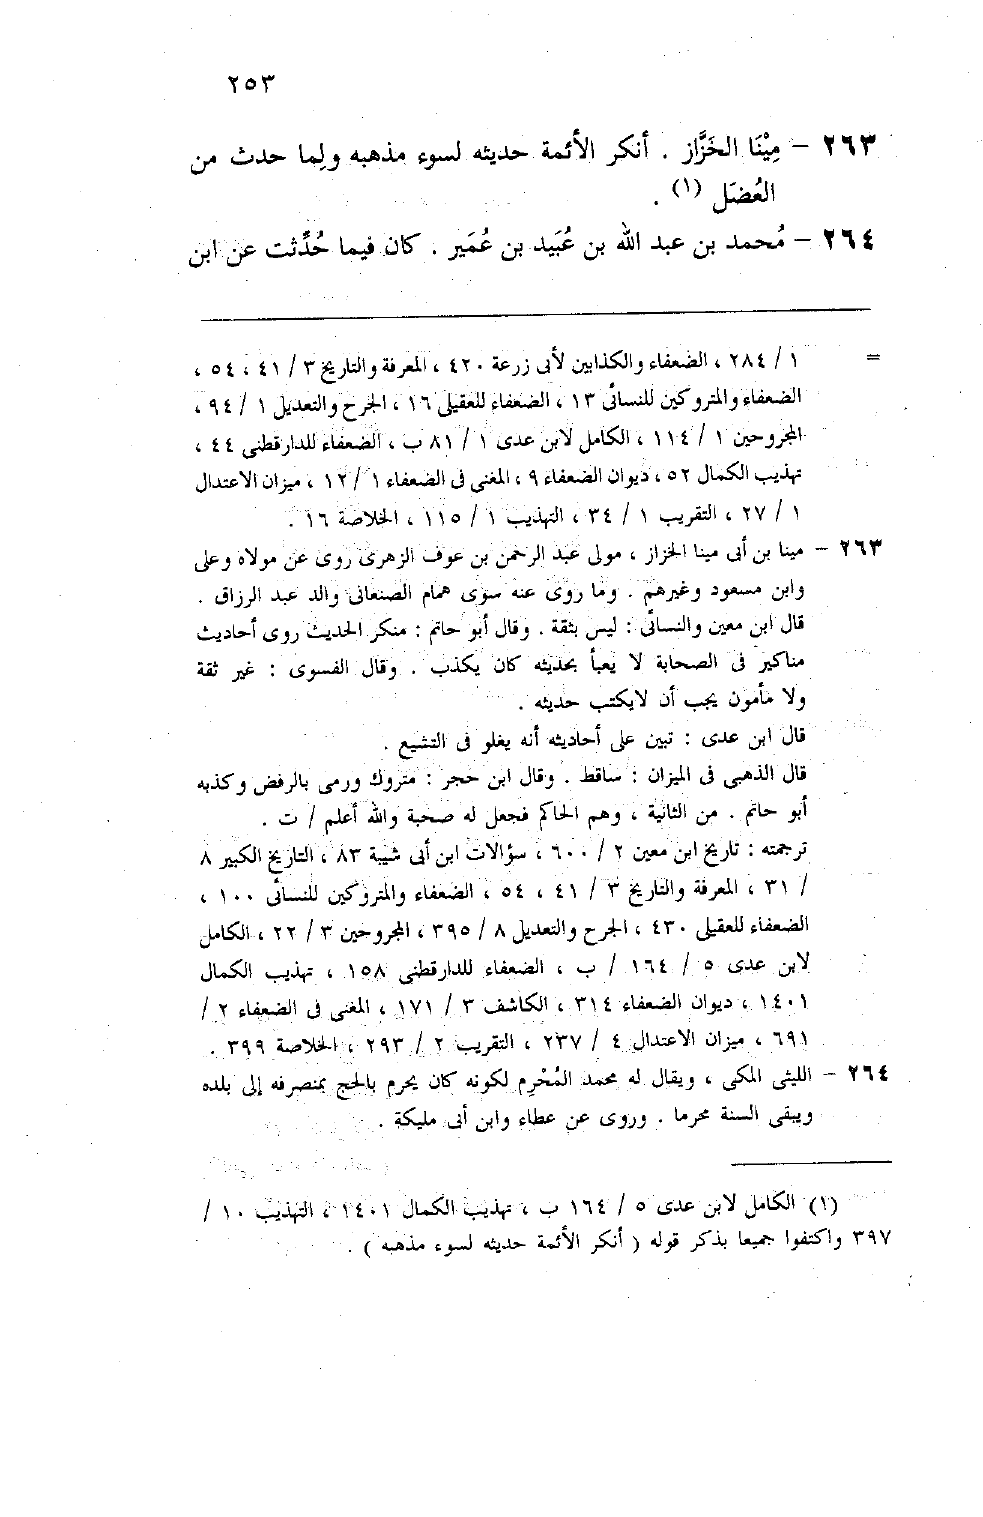 ٢٥٣
٢٦٣ – مِيْنَا الخَزَّاز . أنكر الأئمة حديثه لسوء مذهبه ولِما حدث من
العُضَل (١) .
٢٦٤ – مُحمد بن عبد الله بن عُبَيد بن عُمَير . كان فيما حُدِّثت عن ابن
= ١ / ٢٨٤ ، الضعفاء والكذابين لأبى زرعة ٤٢٠ ، المعرفة والتاريخ ٣ / ٤١ ، ٥٤ ،
الضعفاء والمتروكين للنسائى ١٣ ، الضعفاء للعقيلى ١٦ ، الجرح والتعديل ١ / ٩٤ ،
المجروحين ١ / ١١٤ ، الكامل لابن عدى ١ / ٨١ ب ، الضعفاء للدارقطنى ٤٤ ،
تهذيب الكمال ٥٢ ، ديوان الضعفاء ٩ ، المغنى فى الضعفاء ١ / ١٢ ، ميزان الاعتدال
١ / ٢٧ ، التقريب ١ / ٣٤ ، التهذيب ١ / ١١٥ ، الخلاصة ١٦ .
٢٦٣ – مينا بن أبى مينا الخزاز ، مولى عبد الرحمن بن عوف الزهرى روى عن مولاه وعلى
وابن مسعود وغيرهم . وما روى عنه سوى همام الصنعانى والد عبد الرزاق .
قال ابن معين والنسائى : ليس بثقة . وقال أبو حاتم : منكر الحديث روى أحاديث
مناكير فى الصحابة لا يعبأ بحديثه كان يكذب . وقال الفسوى : غير ثقة
ولا مأمون يجب أن لايكتب حديثه .
قال ابن عدى : تبين على أحاديثه أنه يغلو فى التشيع .
قال الذهبى فى الميزان : ساقط . وقال ابن حجر : متروك ورمى بالرفض وكذبه
أبو حاتم . من الثانية ، وهم الحاكم فجعل له صحبة والله أعلم / ت .
ترجمته : تاريخ ابن معين ٢ / ٦٠٠ ، سؤالات ابن أبى شيبة ٨٣ ، التاريخ الكبير ٨
/ ٣١ ، المعرفة والتاريخ ٣ / ٤١ ، ٥٤ ، الضعفاء والمتروكين للنسائى ١٠٠ ،
الضعفاء للعقيلى ٤٣٠ ، الجرح والتعديل ٨ / ٣٩٥ ، المجروحين ٣ / ٢٢ ، الكامل
لابن عدى ٥ / ١٦٤ / ب ، الضعفاء للدارقطنى ١٥٨ ، تهذيب الكمال
١٤٠١ ، ديوان الضعفاء ٣١٤ ، الكاشف ٣ / ١٧١ ، المغنى فى الضعفاء ٢ /
٦٩١ ، ميزان الاعتدال ٤ / ٢٣٧ ، التقريب ٢ / ٢٩٣ ، الخلاصة ٣٩٩ .
٢٦٤ – الليثى المكى ، ويقال له محمد المُحْرِم لكونه كان يحرم بالحج بمنصرفه إلى بلده
ويبقى السنة محرما . وروى عن عطاء وابن أبى مليكة .
(١) الكامل لابن عدى ٥ / ١٦٤ ب ، تهذيب الكمال ١٤٠١ ، التهذيب ١٠ /
٣٩٧ واكتفوا جميعا بذكر قوله ( أنكر الأئمة حديثه لسوء مذهبه ) .